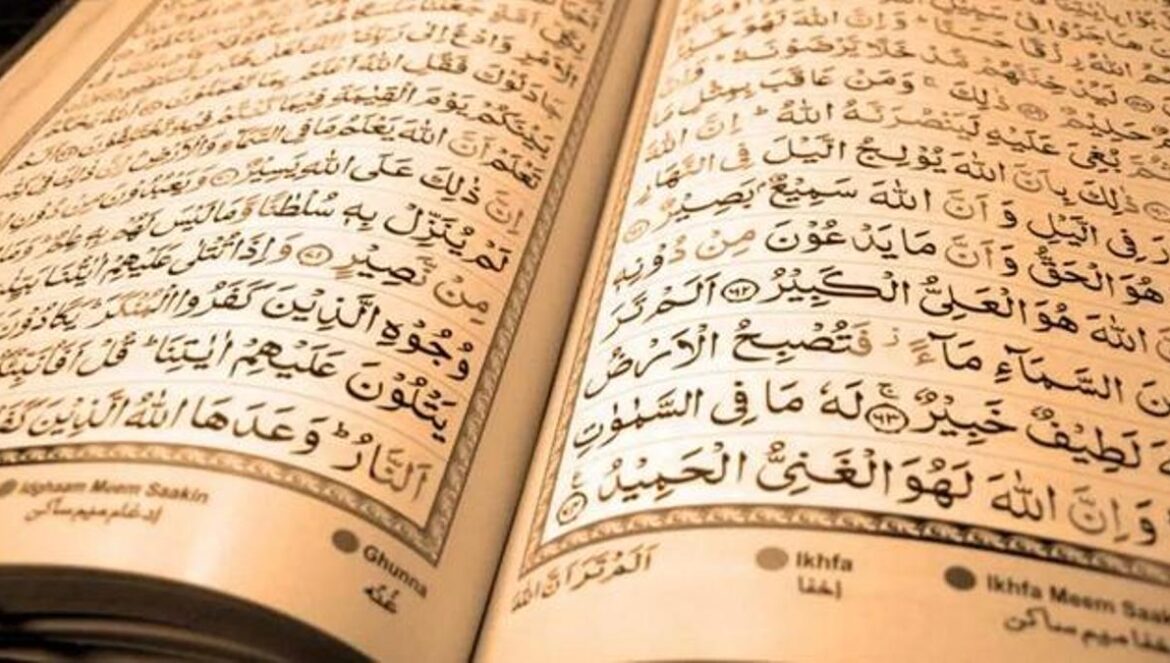 هَاجَرُوْا فِيْ سَبِيْلِ
اللّٰهُ رِزْقًا حَسَنًا ؕ وَاِنَّ اللّٰهَ لَهُوَ
لَيُدْخِلَنَّهُمْ مُّدْخَلًا يَّرْضَوْنَهٗ ؕ
حَلِيْمٌ ۝۵۹ ذٰلِكَ ۚ وَمَنْ عَاقَبَ بِمِثْلِ مَا
ثُمَّ بُغِيَ عَلَيْهِ لَيَنْصُرَنَّهُ اللّٰهُ ؕ اِنَّ اللّٰهَ
ذٰلِكَ بِاَنَّ اللّٰهَ يُوْلِجُ الَّيْلَ فِي النَّهَارِ
رَ فِي الَّيْلِ وَاَنَّ اللّٰهَ سَمِيْعٌۢ بَصِيْرٌ ۝۶۱
هُوَ الْحَقُّ وَاَنَّ مَا يَدْعُوْنَ مِنْ دُوْنِهٖ
نَّ اللّٰهَ هُوَ الْعَلِيُّ الْكَبِيْرُ ۝۶۲ اَلَمْ تَرَ
نَ السَّمَآءِ مَآءً ز فَتُصْبِحُ الْاَرْضُ
هَ لَطِيْفٌ خَبِيْرٌ ۝۶۳ ۚ لَهٗ مَا فِي السَّمٰوٰتِ
وَاِنَّ اللّٰهَ لَهُوَ الْغَنِيُّ الْحَمِيْدُ ۝۶۴
Ikhfa Meem Saak
اخفا میم ساکن
Ikhfa
اخفا
اَلَمْ تَرَ اَنَّ اللّٰهَ
الْاَمْرِ وَادْعُ اِلٰى رَبِّكَ
جَادَلُوْكَ فَقُلِ اللّٰهُ اَعْلَمُ بِمَا تَعْمَلُوْنَ ۝۶۸ اَللّٰهُ يَحْكُمُ
بَيْنَكُمْ يَوْمَ الْقِيٰمَةِ فِيْمَا كُنْتُمْ فِيْهِ تَخْتَلِفُوْنَ ۝۶۹ اَلَمْ
تَعْلَمْ اَنَّ اللّٰهَ يَعْلَمُ مَا فِي السَّمَآءِ وَالْاَرْضِ ؕ اِنَّ ذٰلِكَ فِيْ
اِنَّ ذٰلِكَ عَلَى اللّٰهِ يَسِيْرٌ ۝۷۰ وَيَعْبُدُوْنَ مِنْ دُوْنِ
لَمْ يُنَزِّلْ بِهٖ سُلْطٰنًا وَّمَا لَيْسَ لَهُمْ بِهٖ عِلْمٌ ؕ وَمَا
مِنْ نَّصِيْرٍ ۝۷۱ وَاِذَا تُتْلٰى عَلَيْهِمْ اٰيٰتُنَا
وُجُوْهِ الَّذِيْنَ كَفَرُوا الْمُنْكَرَ ؕ يَكَادُوْنَ
يَتْلُوْنَ عَلَيْهِمْ اٰيٰتِنَا ؕ قُلْ اَفَاُنَبِّئُ
اَلنَّارُ ؕ وَعَدَهَا اللّٰهُ الَّذِيْنَ كَفَ
Ghunna
غُنّہ
Idghaam Meem Saakin
ادغام میم ساکن